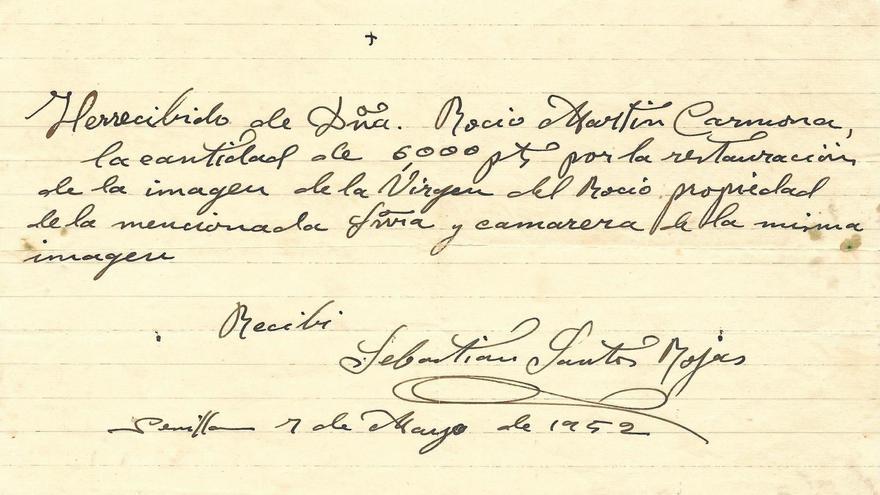 +
He recibido de Dña. Rocio Martin Carmona,
la cantidad de 6,000 pts por la restauración
de la imagen de la Virgen del Rocio propiedad
de la mencionada Sñra y camarera de la misma
imagen
Recibi
Sebastián Santos Rojas
Sevilla 7 de Mayo de 1952